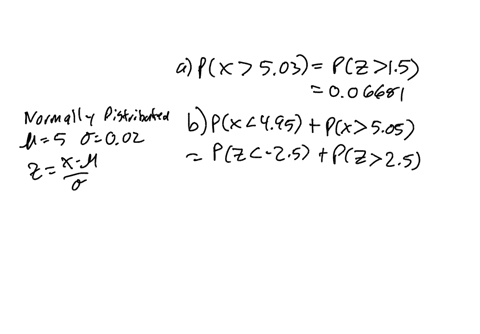 a) P(x > 5.03) = P(z > 1.5)
= 0.06681
Normally Distributed
μ = 5 σ = 0.02
z = (x - μ)/σ
b) P(x < 4.95) + P(x > 5.05)
= P(z < -2.5) + P(z > 2.5)